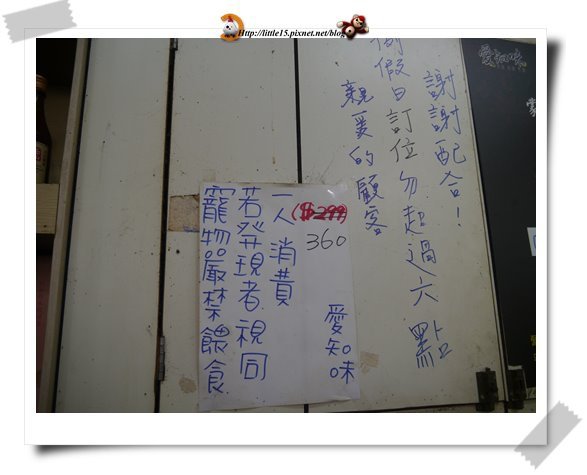 Http://little15.pixnet.net/blog
愛知味
親愛的顧客
例假日訂位勿超過六點
謝謝配合!
寵物嚴禁餵食
若發現者視同
一人消費
($299)
360
愛知味